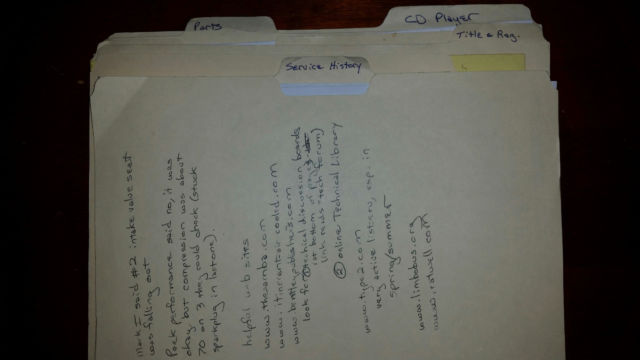 Parts
CD Player
Title & Reg.
Service History
Mark I said #2 intake valve seat
was falling out
Peck performance said no, it was
okay, but compression was about
70 on 3 they could check (stuck
sparkplug in botone).
helpful web sites
www.thesamba.com
www.itinerant-air-cooled.com
www.bentleypublishers.com
look for ① technical discussion boards
(at bottom of page
link rawls "tech forum)
② online Technical Library
www.type2.com
very active listserv, esp. in
spring/summer
www.limbobus.org
www.ratwell.com